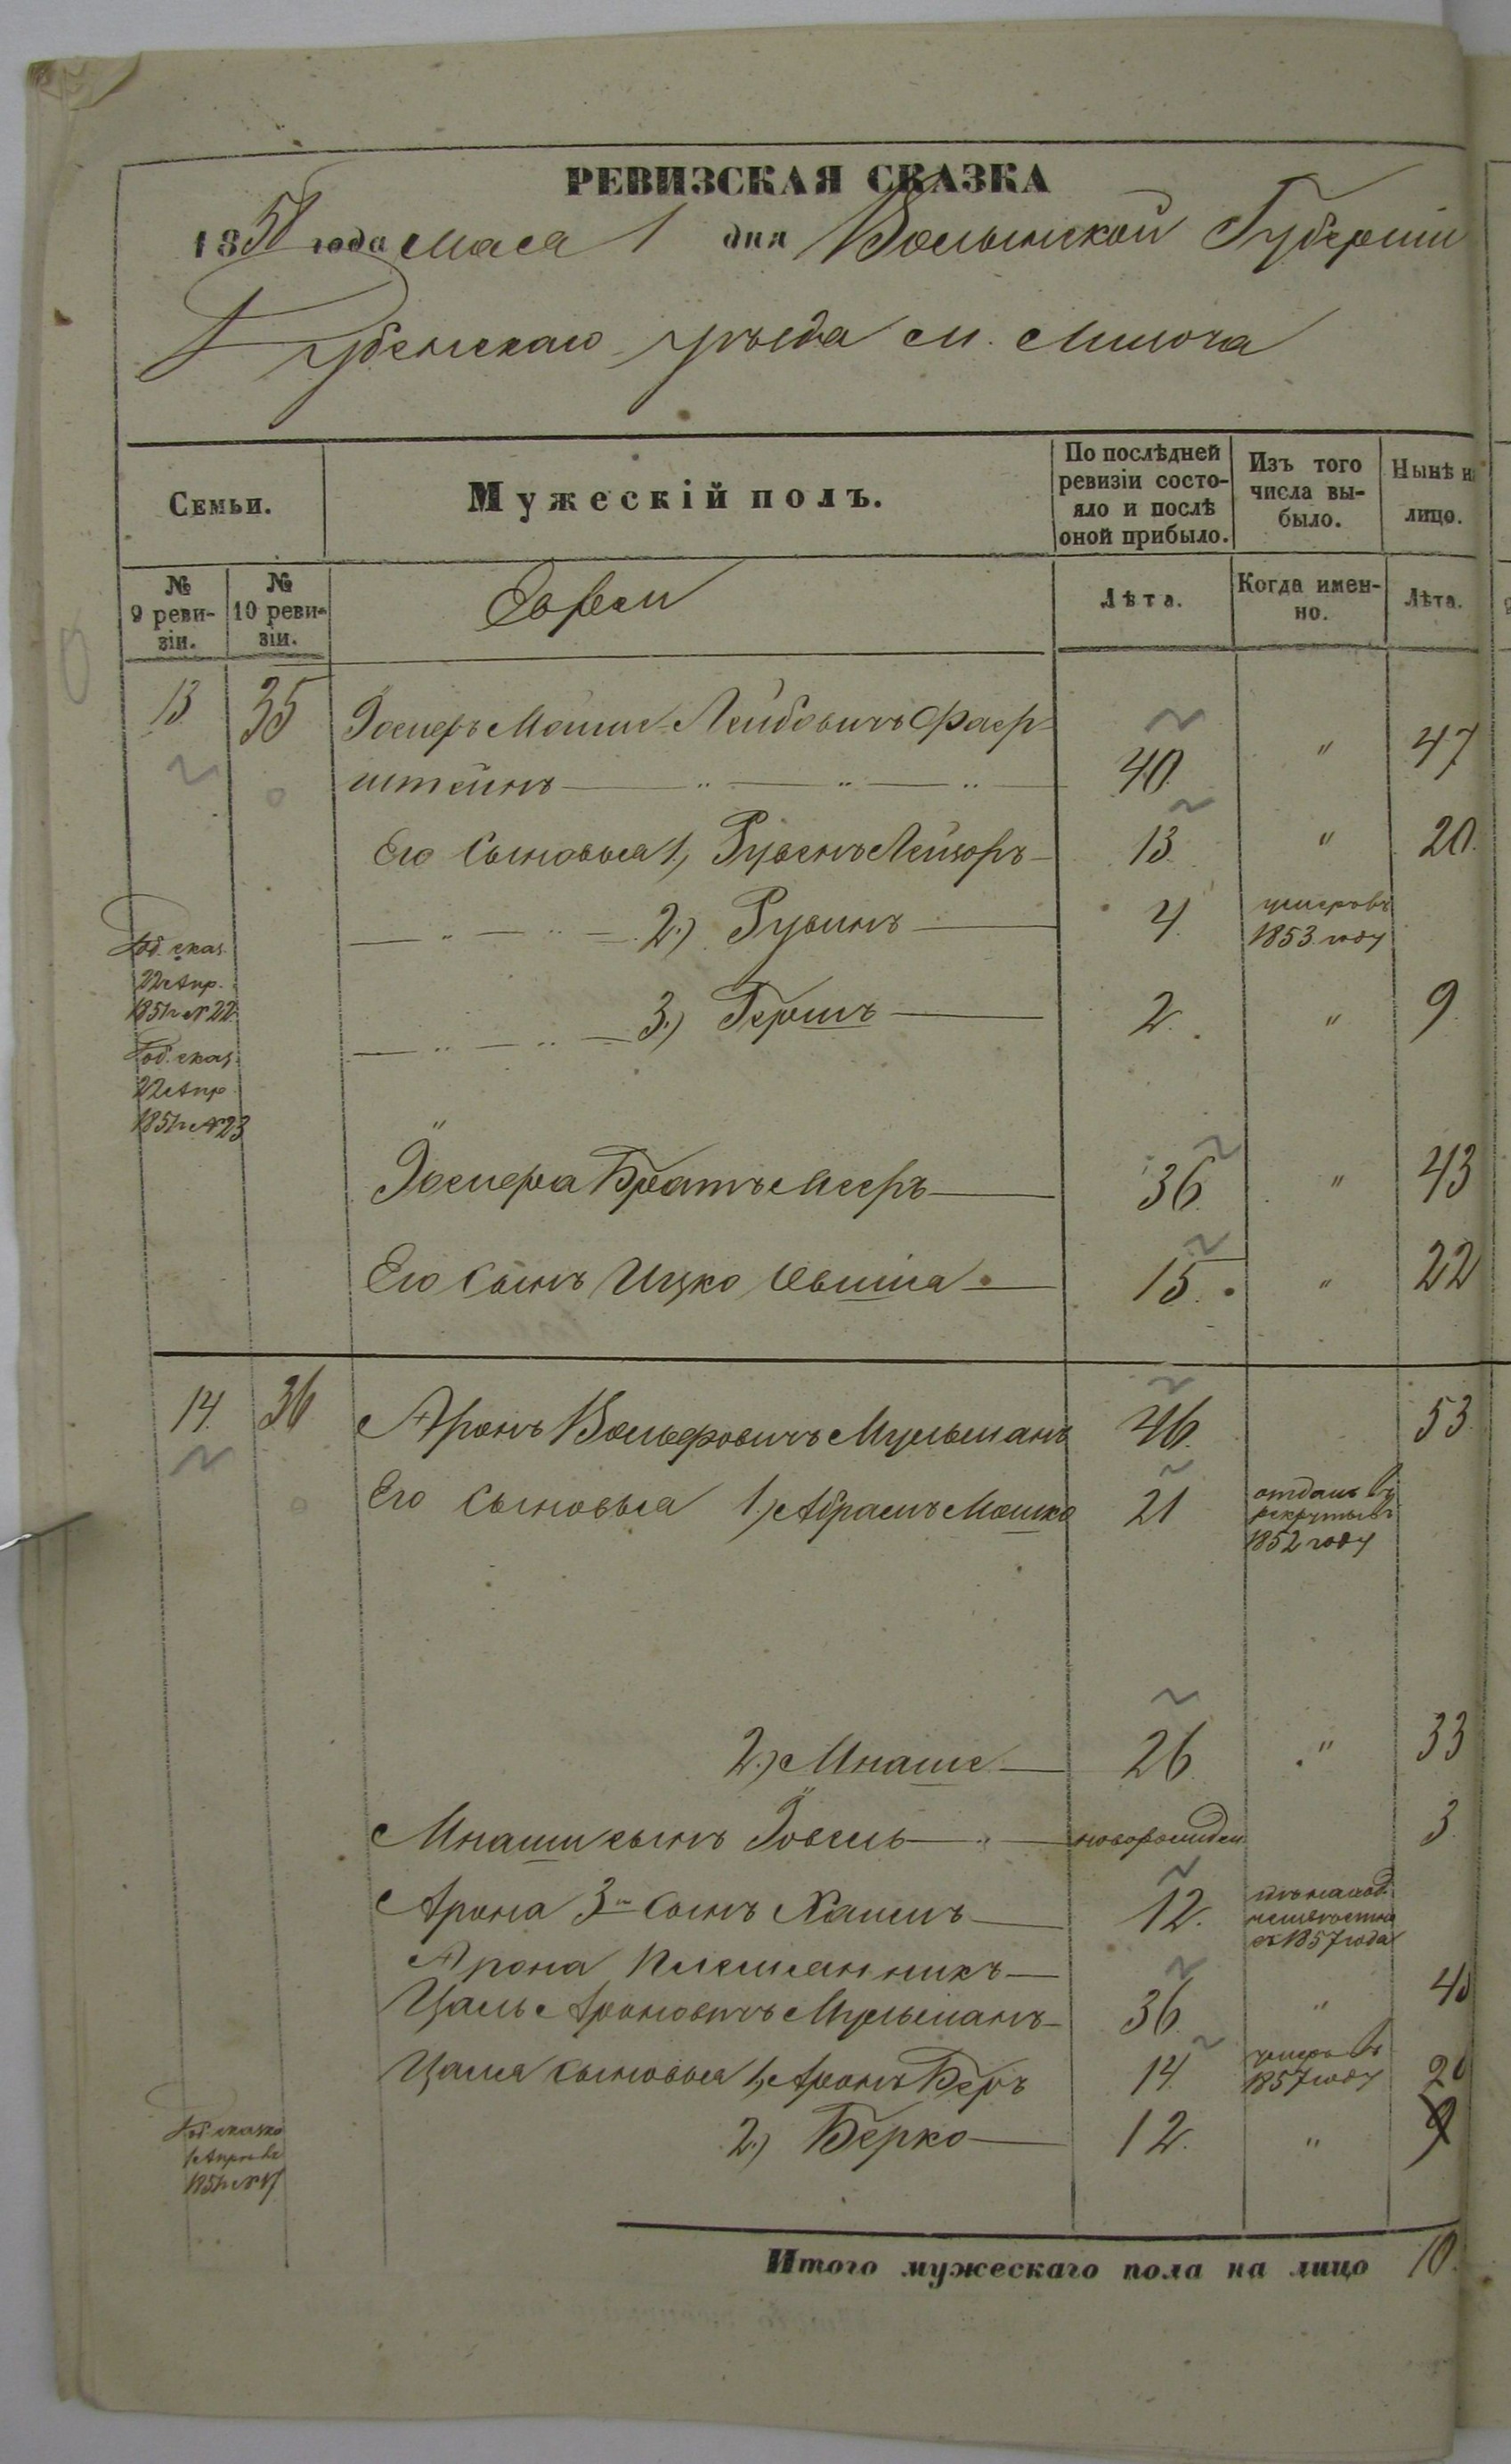 РЕВИЗСКАЯ СКАЗКА
1858 года Мая 1 дня Волынской Губерніи
Дубенскаго уѣзда м. Млинова
Семьи.
Мужескій полъ.
По послѣдней ревизіи состо-
яло и послѣ
оной прибыло.
Изъ того
числа вы-
было.
Нынѣ н
лицо.
№
9 реви-
зіи.
№
10 реви-
зіи.
Евреи
Лѣта.
Когда имен-
но.
Лѣта.
13 35 Лейбовичъ Фаер-
штейнъ 40 " 47
Его Сыновья 1, Рувенъ Лейзоръ 13 " 20
2.) Рувинъ 4 умеръ въ
1853 году
3.) Гершъ 2 " 9
22 Апр.
№ 22
22 Апр
№ 23
Братъ Мееръ 36 " 43
Его Сынъ Ицко 15 " 22
14. 36 Аронъ Вольфовичъ Мульманъ 46 53
Его Сыновья 1, Абрамъ Мошко 21 отданъ въ
рекруты въ
1852 году
2.) Мнаше 26 " 33
Мнаши сынъ Іовель новорожден 3
Арона 3й Сынъ Хаимъ 12.
съ 1857 года
Арона племянникъ
Цаль Ароновичъ Мульманъ 36 "
Цаля сыновья 1, Аронъ Беръ 14 умеръ въ
1857 году
2.) Берко 12. "
Итого мужескаго пола на лицо 10.